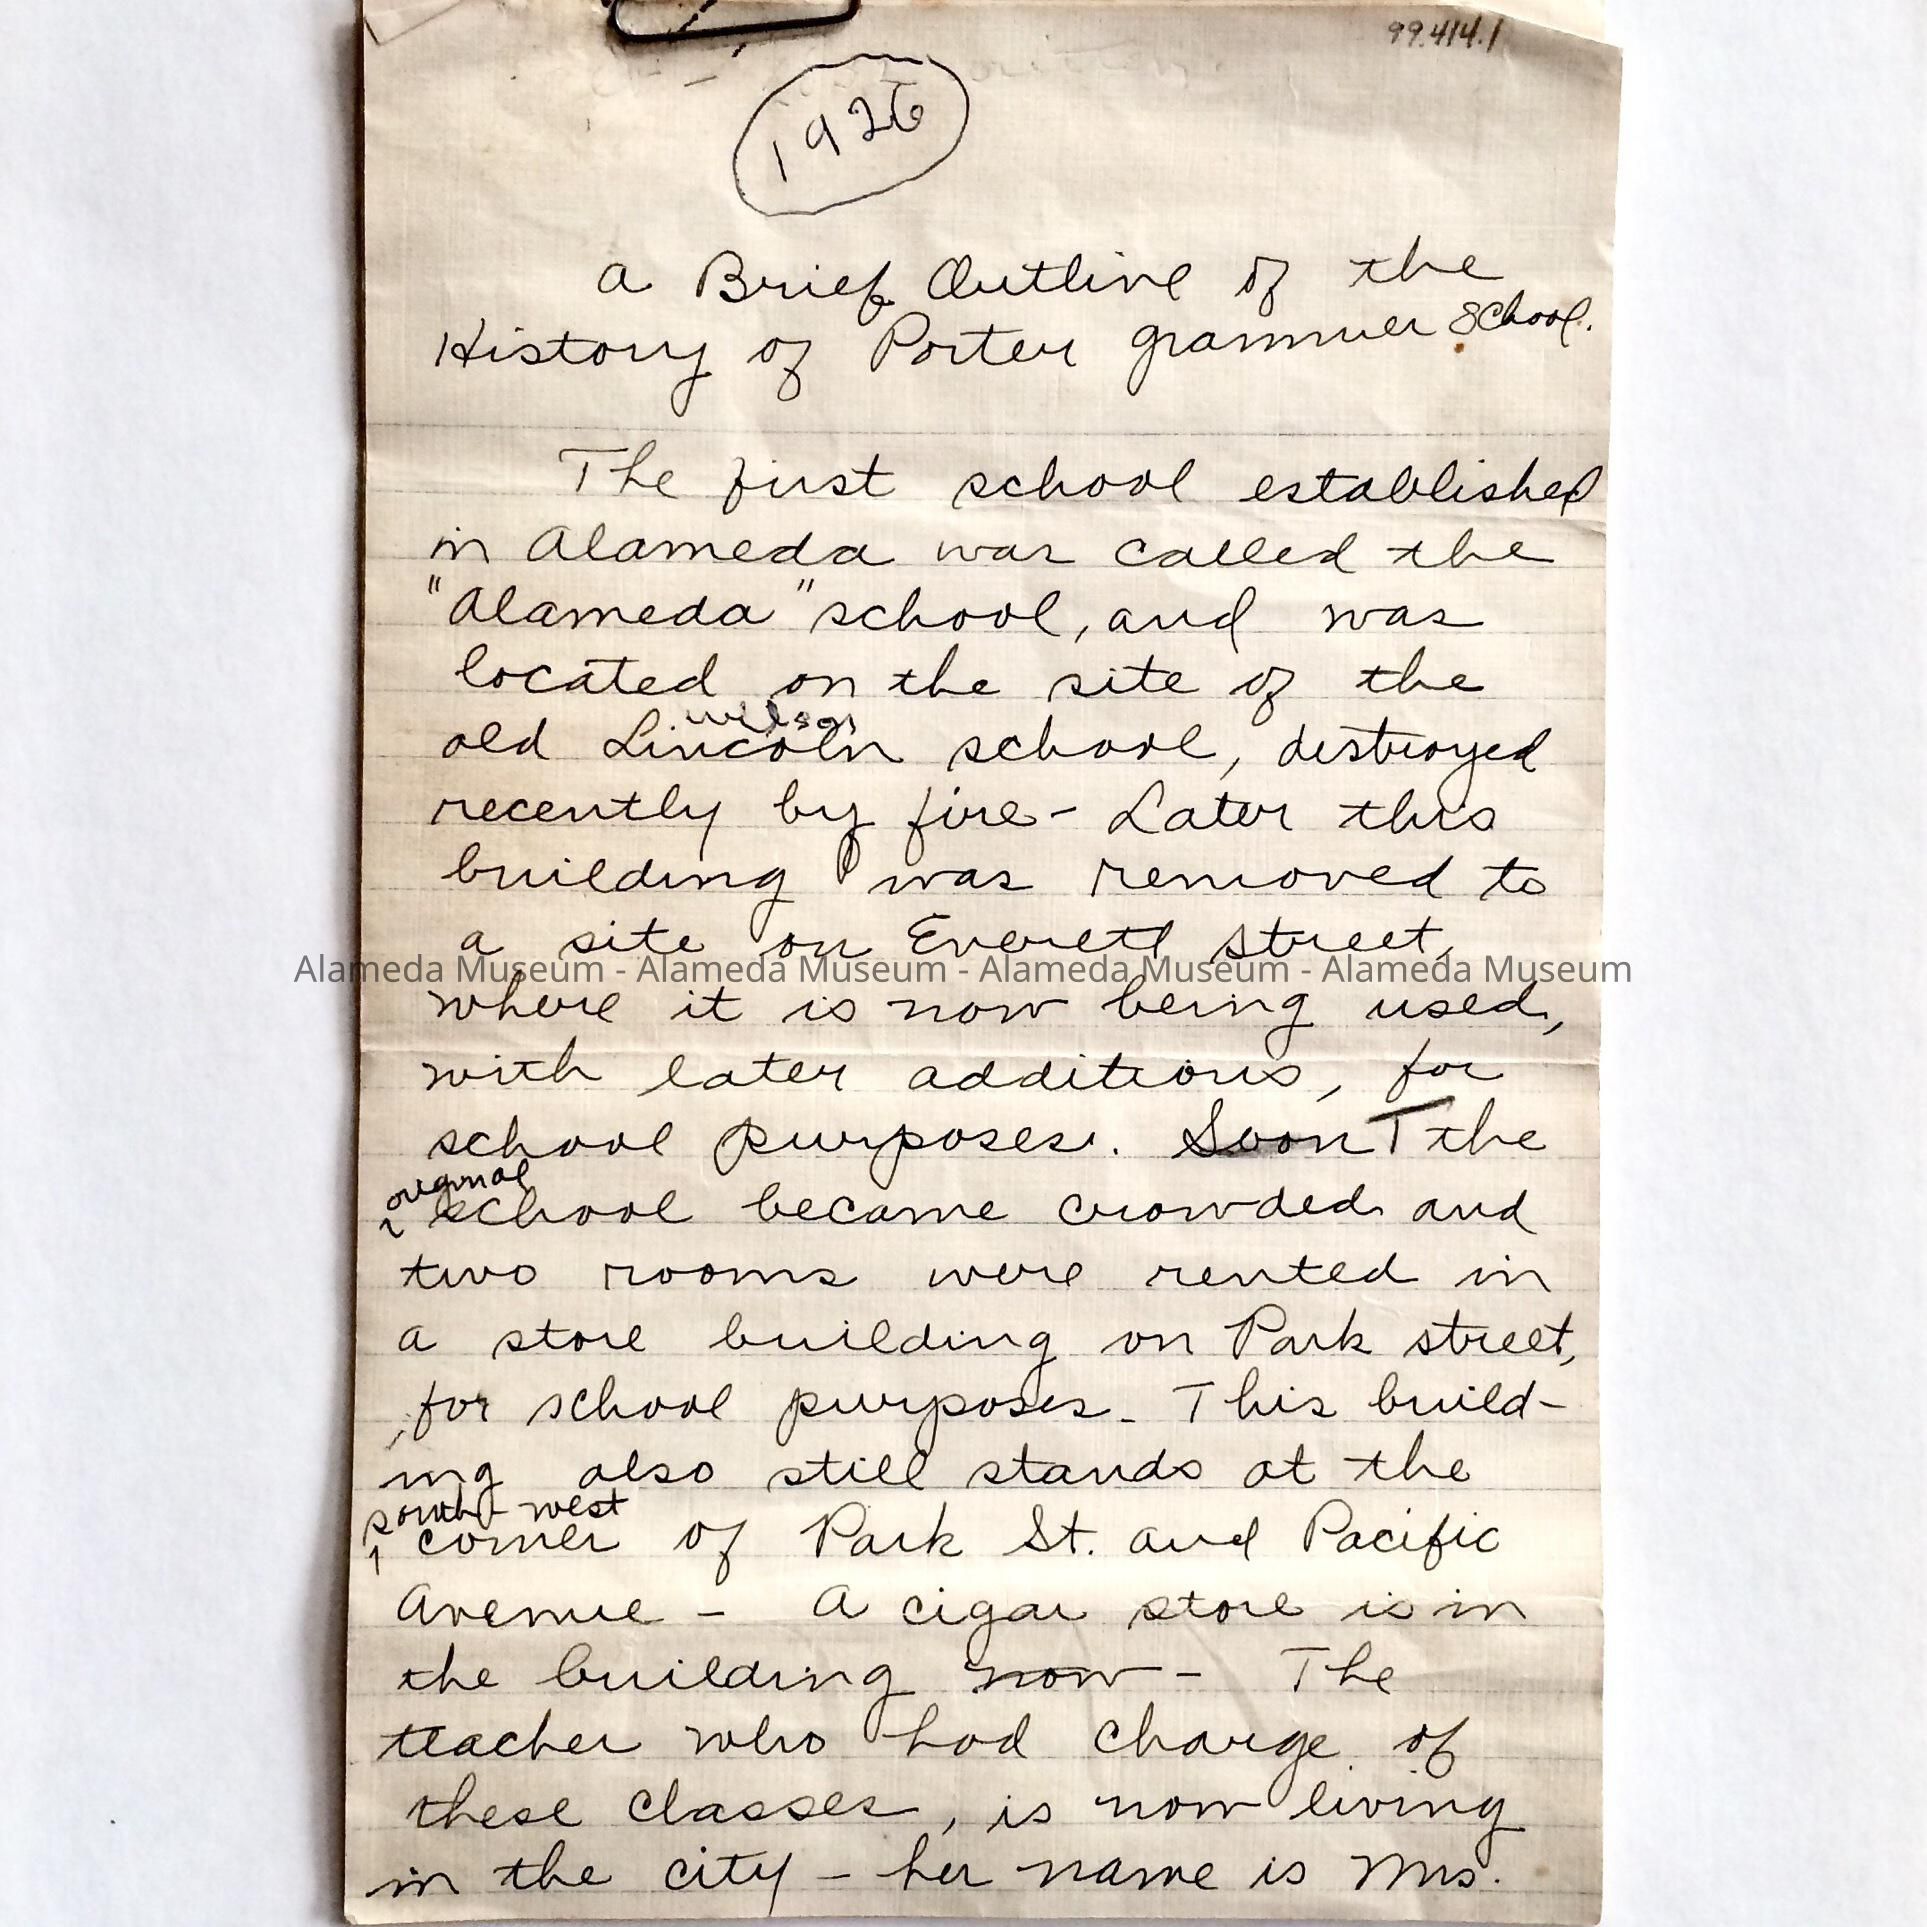 99.414.1
1926
A Brief Outline of the
History of Porter grammer School.
The first school established
in Alameda was called the
"Alameda" school, and was
located on the site of the
wilson
old Lincoln school, destroyed
recently by fire - Later this
building was removed to
a site on Everett street,
Alameda Museum - Alameda Museum - Alameda Museum - Alameda Museum
where it is now being used,
with later additions, for
school purposes. Soon T the
original
school became crowded and
two rooms were rented in
a store building on Park street,
for school purposes - This build-
ing also still stands at the
south west
corner of Park St. and Pacific
Avenue - A cigar store is in
the building now - The
teacher who had charge of
these classes, is now living
in the city - her name is Mrs.